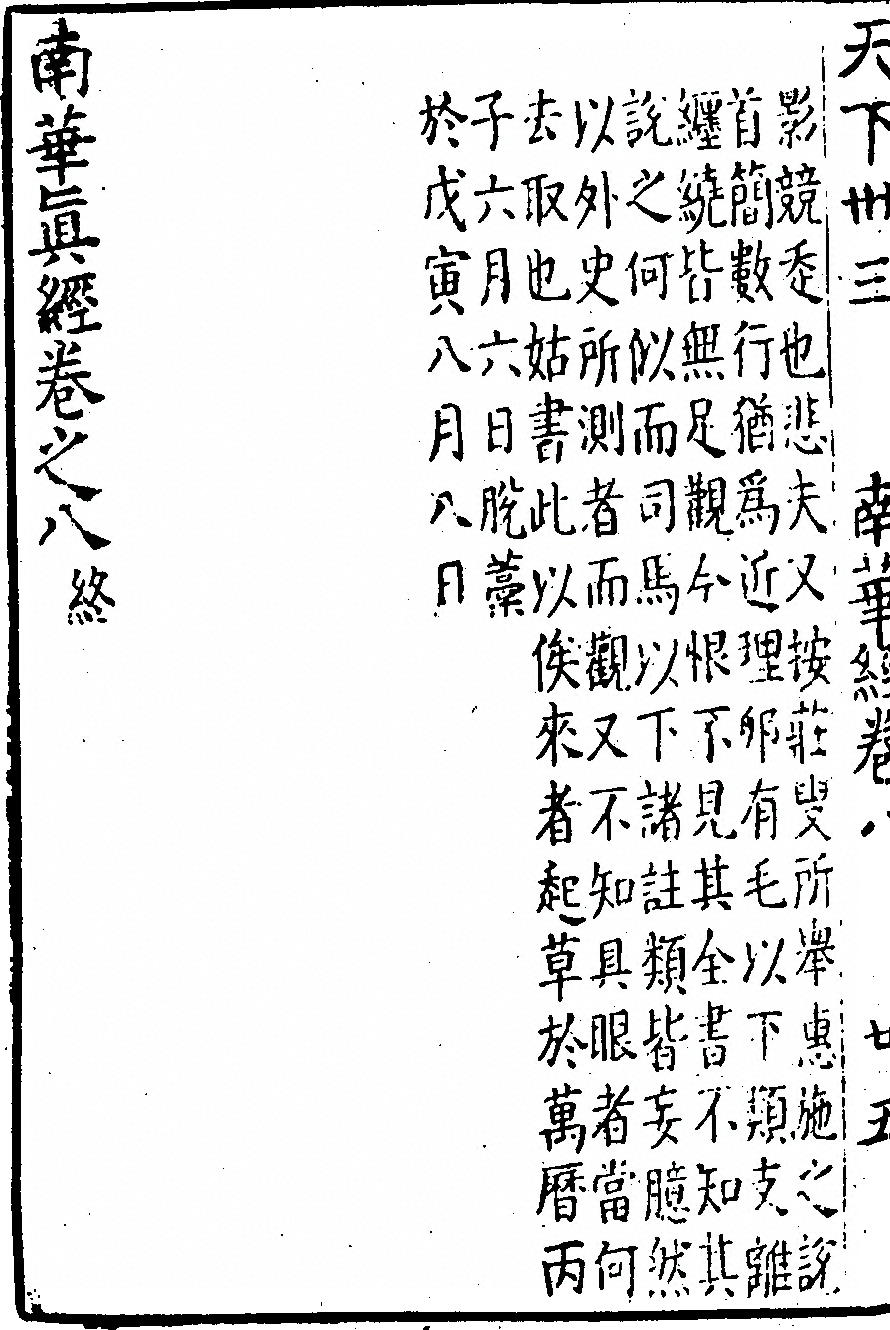 天下卅三 南華經卷八 廿五
影競走也悲夫又按莊叟所舉惠施之說
首簡數行猶爲近理卵有毛以下類支離
纏繞皆無足觀今恨不見其全書不知其
說之何似而司馬以下諸註類皆妄臆然
以外史所測者而觀又不知具眼者當何
去取也姑書此以俟來者起草於萬曆丙
子六月六日脫藁
於戊寅八月八日
南華眞經卷之八 終